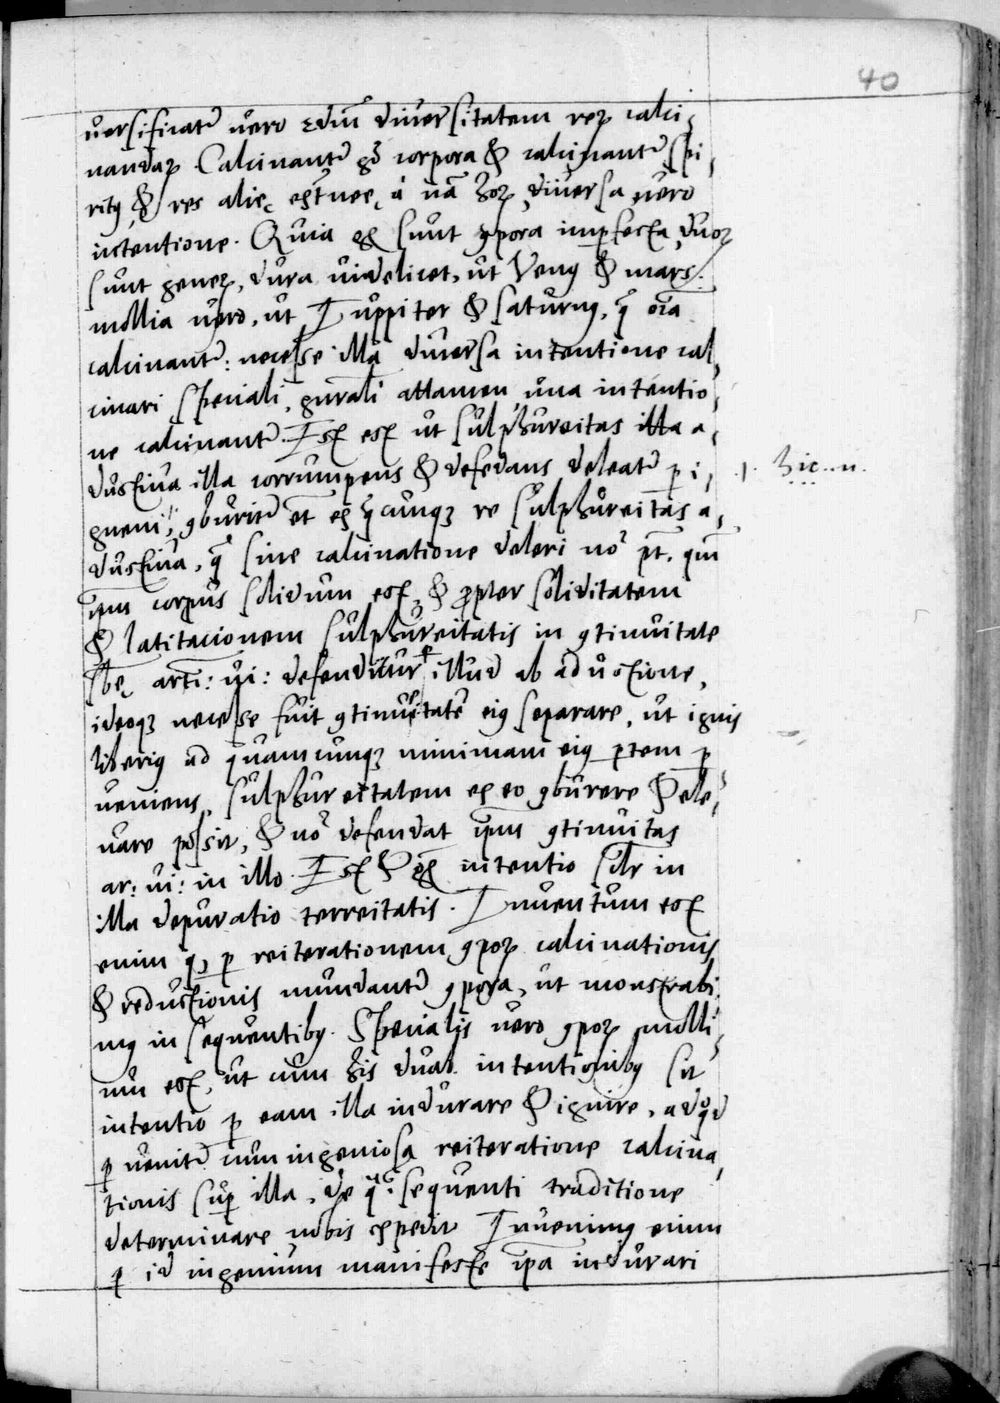 40
versificatr vero scdm diversitatem rerum calci,
nandarum. Calcinantr gο corpora & calcinantr spi,
ritus, & res alie extranee, a na horum, diversa vero
intentione. Quia ex sunt corpora imperfecta, duorum
sunt generum, dura videlicet, ut Venus & mars.
mollia vero, ut Iuppiter & saturnus, q oia
calcinantr: necesse illa diversa intentione cal,
cinari speciali, gnrali attamen una intentio,
ne calcinantr. Est ex ut sulphureitas illa a,
dustiva illa corrumpens & defedans deleatr p i,
gnem, comburitr et ex qcunq re sulphureitas a,
dustiva, q sine calcinatione deleri no pt. qm
ipm corpus solidum est, & propter soliditatem
& latitacionem sulphureitatis in continuitate
sbe arti: vi: defenditur illud ab adustione,
ideoq necesse fuit continuitate eius separare, ut ignis
liberius ad quamcunq minimam eius ptem p
veniens, sulphureitatem ex eo comburere & ele,
vare possit, & no defendat ipm continuitas
ar: vi: in illo. Est & ex intentio silr in
illa depuratio terreitatis. Inventum est
enim q p reiterationem corporum calcinationis
& reductionis mundantr corpora, ut monstrabi,
mus in sequentibus. Specialis vero corporum molli,
um est, ut cum his duab. intentionibus sit
intentio p eam illa indurare & ignire, ad qd
p venitr cum ingeniosa reiteratione calcina,
tionis sup illa, de q sequenti traditione
determinare nobis expedit Invenimus enim
p id ingenium manifeste ipa indurari
.1. hic...n.